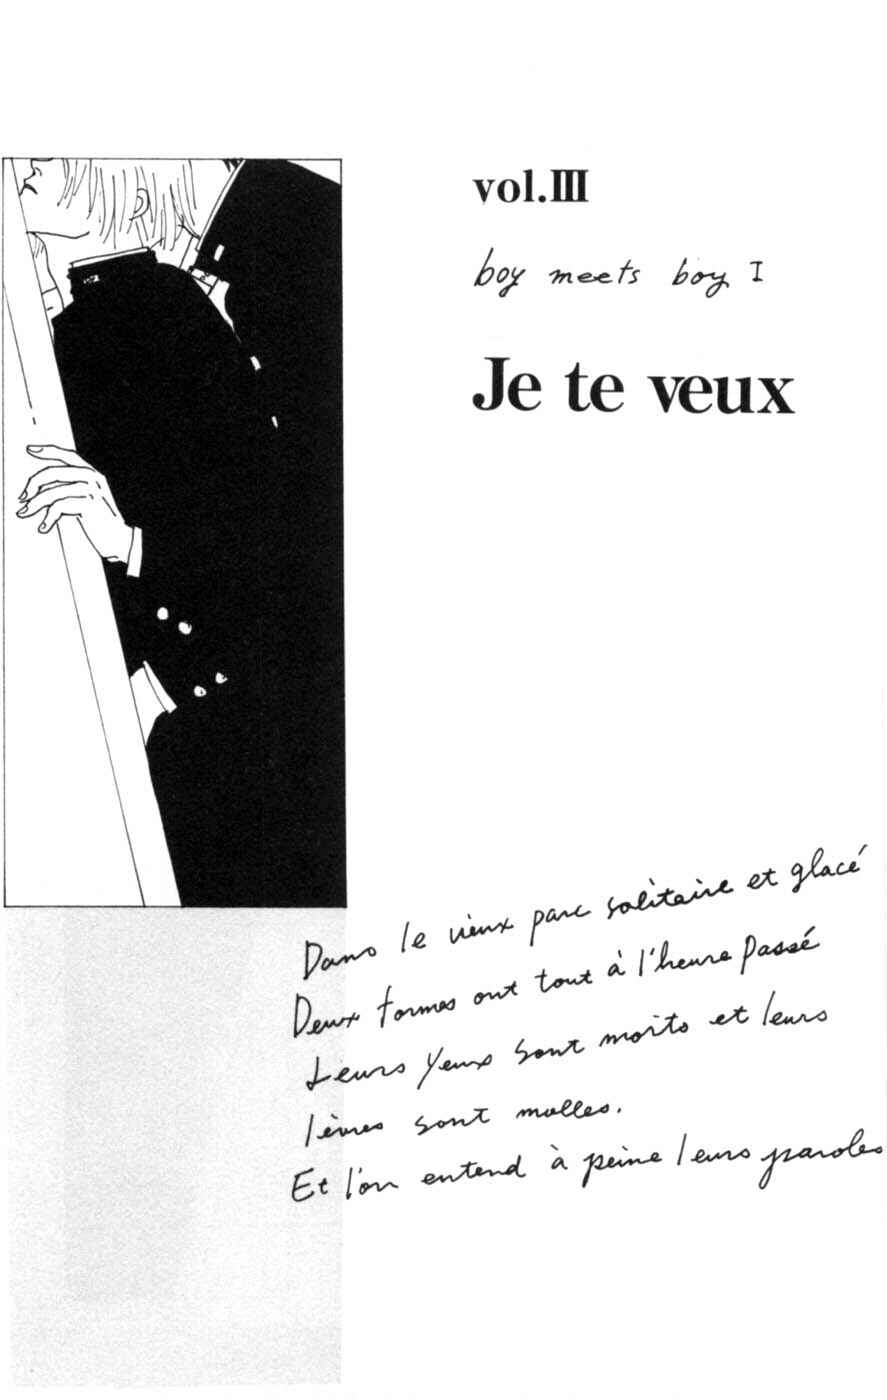 vol.III
boy meets boy I
Je te veux
Dans le vieux parc solitaire et glacé
Deux formes ont tout à l'heure passé
Leurs yeux sont morts et leurs
lèvres sont molles.
Et l'on entend à peine leurs paroles